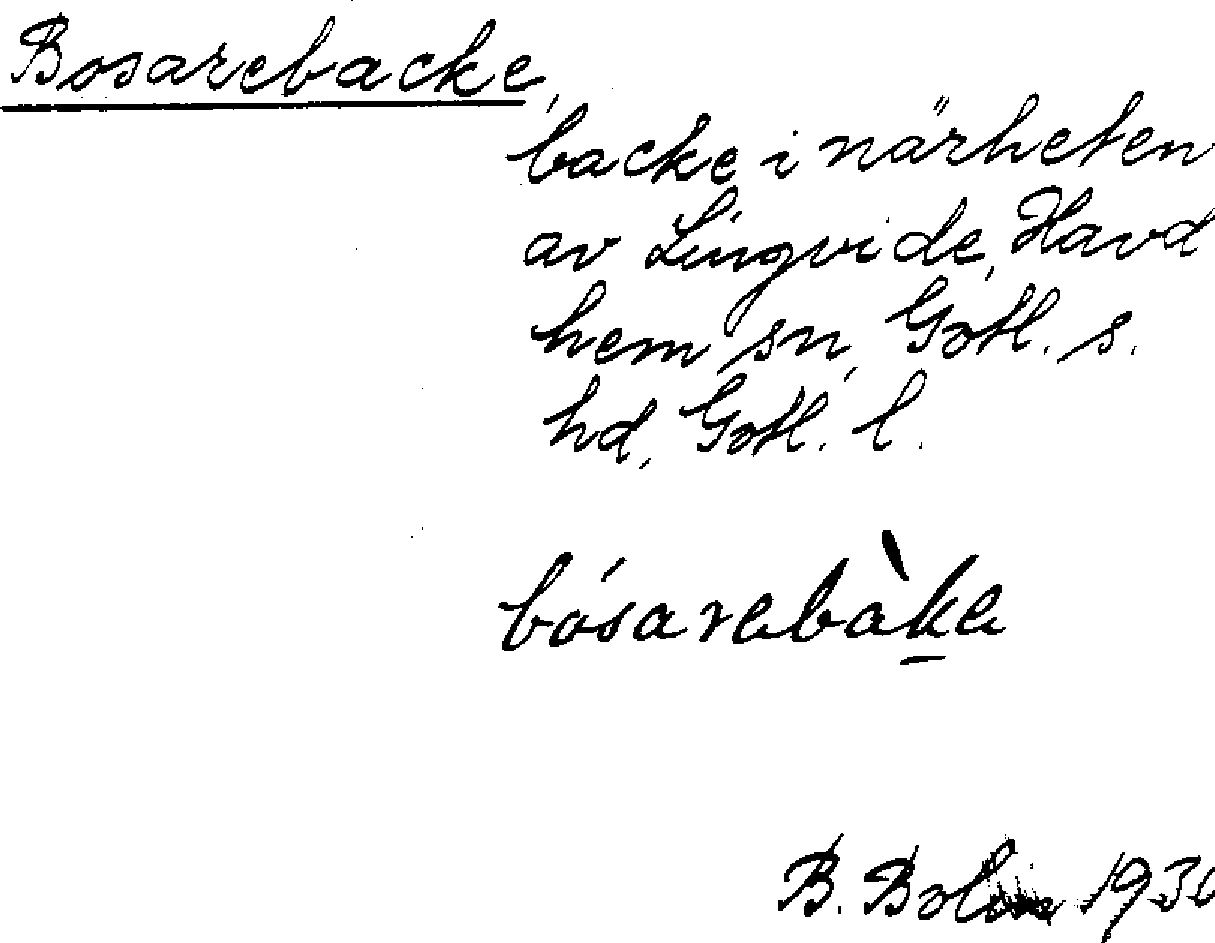 Bosarebacke,
backe i närheten
av Lingvide, Havd
hem sn, Gotl. s.
hd, Gotl. l.
bósarebàke
B. Bolin